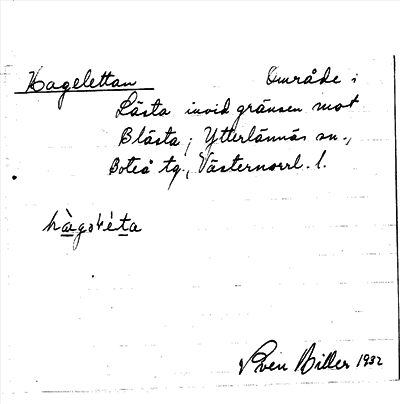 Hagelettan Område i
Lästa invid gränsen mot
Blästa; Ytterlännäs sn.,
Boteå tg., Västernorrl. l.
Sven Biller 1932